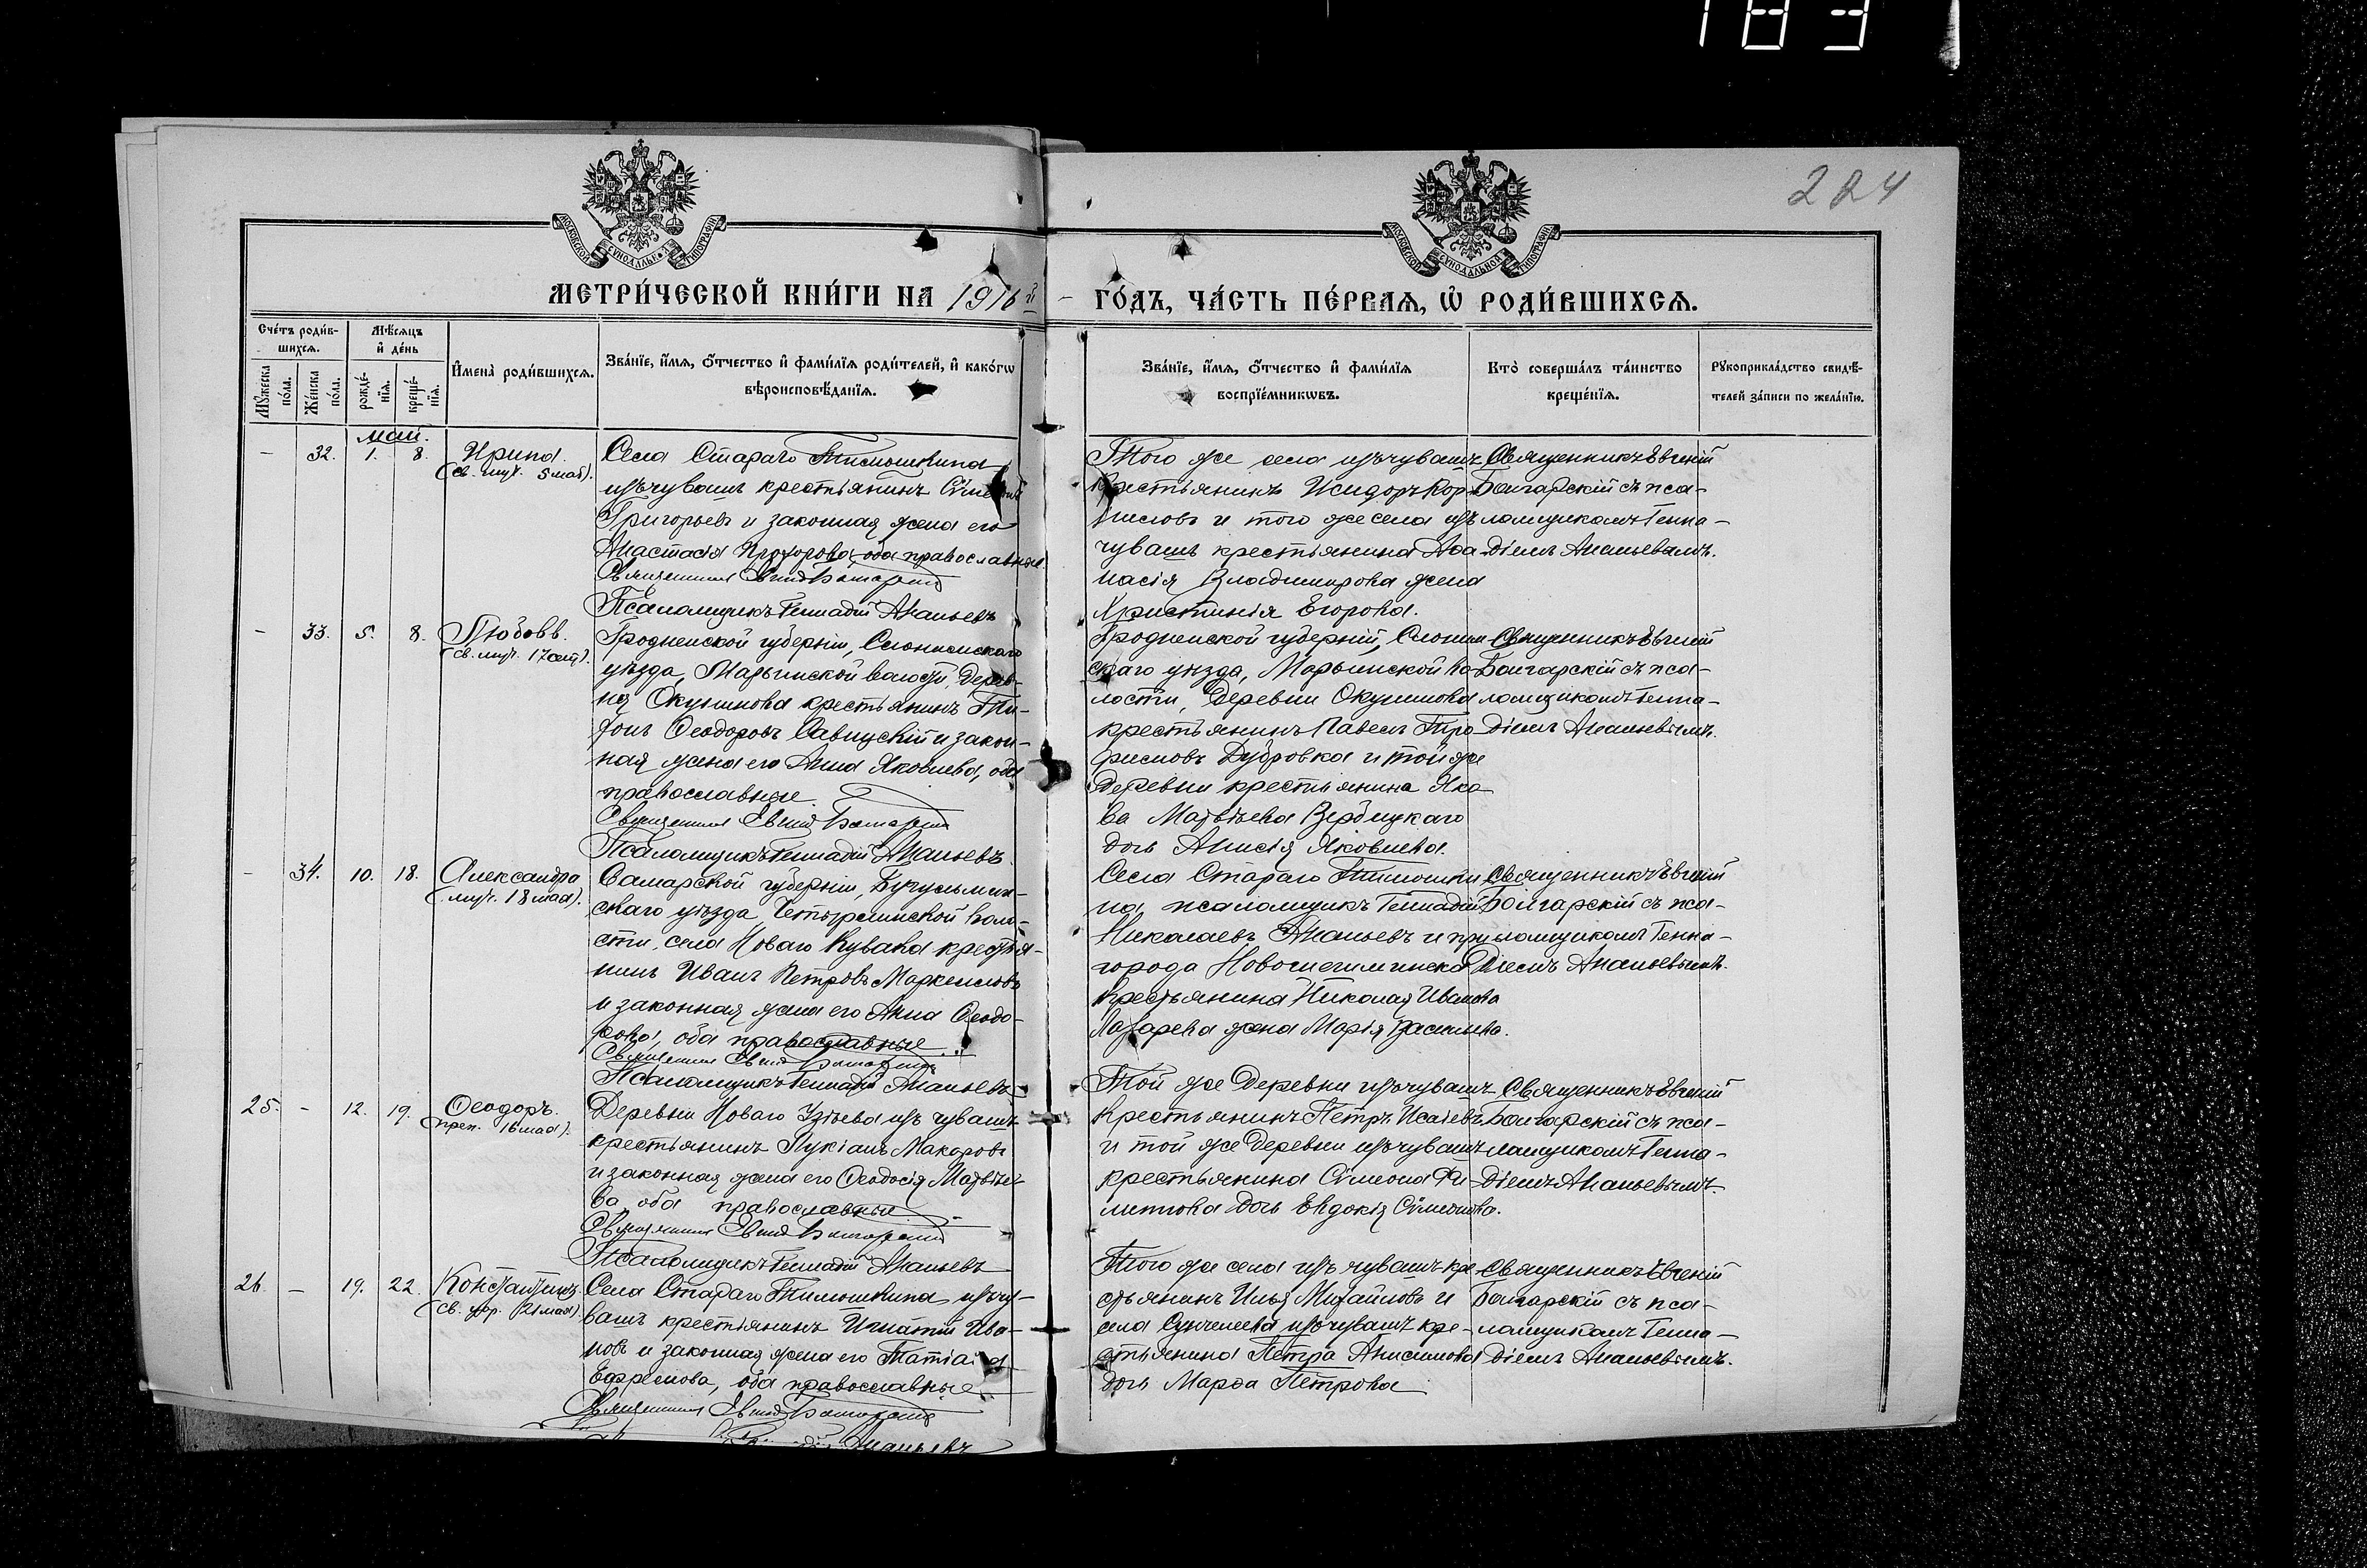 183
224
МОСКОВСКОЙ СУНОДАЛЬНОЙ ТИПОГРАФІИ
МОСКОВСКОЙ СУНОДАЛЬНОЙ ТИПОГРАФІИ
МЕТРИ́ЧЕСКОЙ КНИ́ГИ НА 1916й - ГО́ДЪ, ЧА́СТЬ ПЕ́РВАЯ, Ѽ РОДИ́ВШИХСЯ.
Сче́тъ роди́в-
шихся.
Мѣ́сяцъ
и҆ де́нь
Мꙋ́жеска по́ла.
Же́нска по́ла.
рожде́-
нїя.
креще́-
нїя.
И҆мена̀ роди́вшихся.
Зва́нїе, и҆́мя, ѻ҆́тчество и҆ фами́лїя роди́телей, и҆ како́гѡ
вѣроисповѣ́данїя.
Зва́нїе, и҆́мя, ѻ҆́тчество и҆ фами́лїя
воспрїе́мникѡвъ.
Кто̀ соверша́лъ та́инство
креще́нїя.
Рꙋкоприкла́дство свидѣ́-
телей за́писи по жела́нїю.
май.
- 32. 1. 8. Ирина.
(св. муч. 5 мая).
Села Стараго Тимошкина
изъ чувашъ крестьянинъ Сѵмеонъ
Григорьевъ и законная жена его
Анастасія Прохорова оба православные.
Священникъ Евгеній Болгарскій
Псаломщикъ Геннадій Ананьевъ
Того же села изъ чувашъ
крестьянинъ Исидоръ Кор-
ниловъ и того же села изъ
чувашъ крестьянина Аѳа-
насія Владимирова жена
Христинія Егорова.
Священникъ Евгеній
Болгарскій съ пса-
ломщикомъ Генна-
діемъ Ананьевымъ.
- 33. 5. 8. Любовь.
(св. муч. 17 сент).
Гродненской губерніи, Слонимскаго
уѣзда, Марьинской волости, Дерев-
ни Окуниново крестьянинъ Ти-
фонъ Ѳеодоровъ Савицкій и закон-
ная жена его Анна Яковлева, оба
православные.
Священникъ Евгеній Болгарскій
Псаломщикъ Геннадій Ананьевъ.
Гродненской губерніи, Слоним-
скаго уѣзда, Марьинской во-
лости, Деревни Окуниново
крестьянинъ Павелъ Тро-
фимовъ Дубровка и той же
Деревни крестьянина Яко-
ва Матвѣева Вербицкаго
дочь Анисія Яковлева.
Священникъ Евгеній
Болгарскій съ пса-
ломщикомъ Генна-
діемъ Ананьевымъ.
- 34. 10. 18. Александра
(муч. 18 мая).
Самарской губерніи, Бугульмин-
скаго уѣзда, Четырлинской воло-
сти, села Новаго Кувака крестья-
нинъ Иванъ Петровъ Маркеловъ
и законная жена его Анна Ѳеодо-
рова, оба православные
Священникъ Евгеній Болгарскій
Псаломщикъ Геннадій Ананьевъ
Села Стараго Тимошки-
на псаломщикъ Геннадій
Николаевъ Ананьевъ и при-
города Новошешминска
крестьянина Николая Иванова
Лазарева жена Марія Васильева.
Священникъ Евгеній
Болгарскій съ пса-
ломщикомъ Генна-
діемъ Ананьевымъ.
25. - 12. 19. Ѳеодоръ.
(преп. 16 мая).
Деревни Новаго Узѣева изъ чувашъ
крестьянинъ Лукіанъ Макаровъ
и законная жена его Ѳеодосія Матвѣе-
ва, оба православные
Священникъ Евгеній Болгарскій
Псаломщикъ Геннадій Ананьевъ
Той же Деревни изъ чувашъ
крестьянинъ Петръ Исаевъ
и той же Деревни изъ чувашъ
крестьянина Сѵмеона Фи-
липпова дочь Евдокія Сѵмеонова.
Священникъ Евгеній
Болгарскій съ пса-
ломщикомъ Генна-
діемъ Ананьевымъ.
26. - 19. 22. Константинъ
(св. цар. 21 мая).
Села Стараго Тимошкина изъ чу-
вашъ крестьянинъ Игнатій Ива-
новъ и законная жена его Татіана
Ефремова, оба православные
Священникъ Евгеній Болгарскій
Ананьевъ
Того же села изъ чувашъ кре-
стьянинъ Илья Михайловъ и
села изъ чувашъ кре-
стьянина Петра Анисимова
дочь Марѳа Петрова
Священникъ Евгеній
Болгарскій съ пса-
ломщикомъ Генна-
діемъ Ананьевымъ.